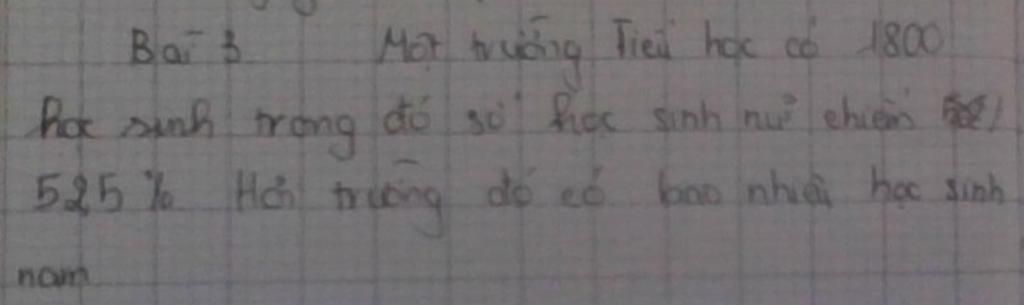 Bài 3 Một trường Tiểu học có 1800
học sinh trong đó số học sinh nữ chiếm
525% Hỏi trường đó có bao nhiêu học sinh
nam